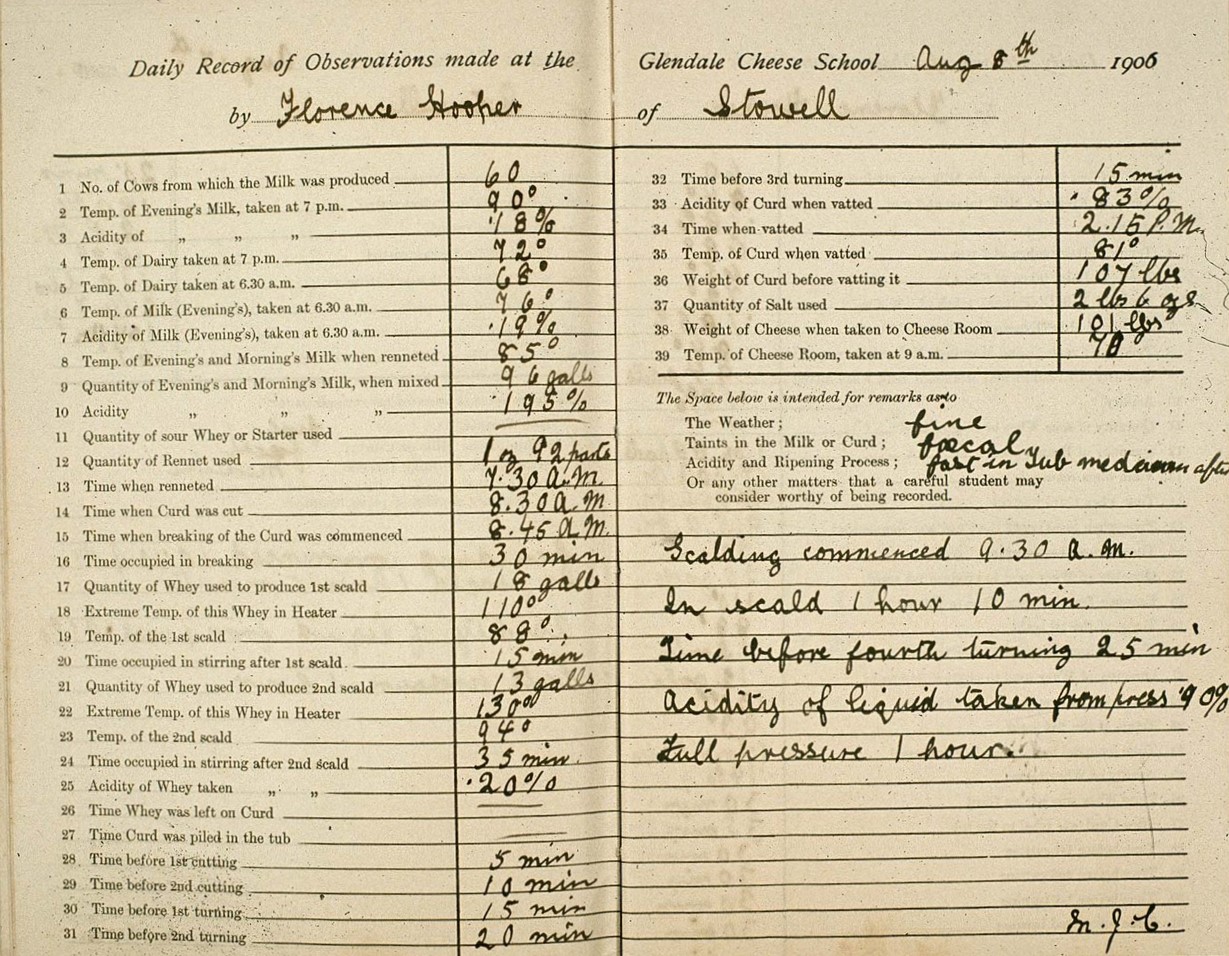 Daily Record of Observations made at the Glendale Cheese School Aug 8th 1906
by Florence Hooper of Stowell
1 No. of Cows from which the Milk was produced 60
2 Temp. of Evening's Milk, taken at 7 p.m. 90°
3 Acidity of „ „ „ ·18%
4 Temp. of Dairy taken at 7 p.m. 72°
5 Temp. of Dairy taken at 6.30 a.m. 68°
6 Temp. of Milk (Evening's), taken at 6.30 a.m. 76°
7 Acidity of Milk (Evening's), taken at 6.30 a.m. ·19%
8 Temp. of Evening's and Morning's Milk when renneted 85°
9 Quantity of Evening's and Morning's Milk, when mixed 96 galls
10 Acidity „ „ „ ·195%
11 Quantity of sour Whey or Starter used
12 Quantity of Rennet used 1 oz 92 parts
13 Time when renneted 7.30 A.M.
14 Time when Curd was cut 8.30 A.M.
15 Time when breaking of the Curd was commenced 8.45 A.M.
16 Time occupied in breaking 30 min
17 Quantity of Whey used to produce 1st scald 18 galls
18 Extreme Temp. of this Whey in Heater 110°
19 Temp. of the 1st scald 88°
20 Time occupied in stirring after 1st scald 15 min
21 Quantity of Whey used to produce 2nd scald 13 galls
22 Extreme Temp. of this Whey in Heater 130°
23 Temp. of the 2nd scald 94°
24 Time occupied in stirring after 2nd scald 35 min.
25 Acidity of Whey taken „ „ ·20%
26 Time Whey was left on Curd
27 Time Curd was piled in the tub
28 Time before 1st cutting 5 min
29 Time before 2nd cutting 10 min
30 Time before 1st turning 15 min
31 Time before 2nd turning 20 min
32 Time before 3rd turning 15 min
33 Acidity of Curd when vatted ·83%
34 Time when vatted 2.15 P.M.
35 Temp. of Curd when vatted 81°
36 Weight of Curd before vatting it 107 lbs
37 Quantity of Salt used 2 lbs 6 ozs
38 Weight of Cheese when taken to Cheese Room 101 lbs
39 Temp. of Cheese Room, taken at 9 a.m. 70°
The Space below is intended for remarks as to
The Weather; fine
Taints in the Milk or Curd; fœcal
Acidity and Ripening Process; fast in tub medium after
Or any other matters that a careful student may
consider worthy of being recorded.
Scalding commenced 9.30 A.M.
In scald 1 hour 10 min.
Time before fourth turning 25 min
Acidity of liquid taken from press ·90%
Full pressure 1 hour.